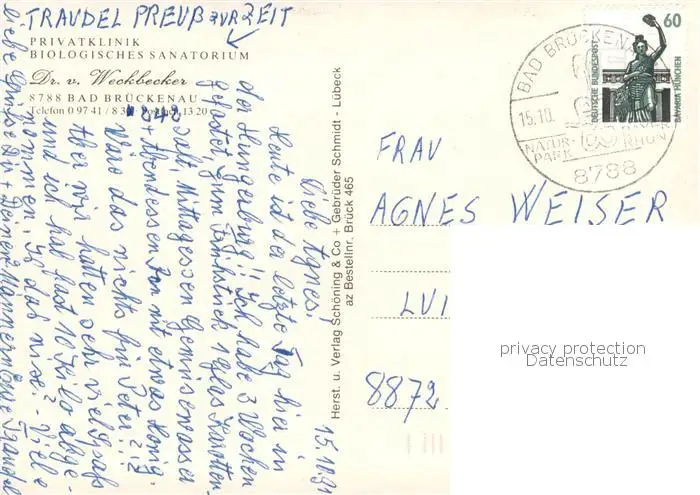 TRAUDEL PREUß ZUR ZEIT
PRIVATKLINIK
BIOLOGISCHES SANATORIUM
Dr. v. Weckbecker
8788 BAD BRÜCKENAU
Telefon 0 97 41 / 8 Postfach 13 20
15.10.91
Liebe Agnes!
Heute ist der letzte Tag hier in
der Hungerburg!! Ich habe 3 Wochen
gefastet, zum Frühstück 1 Glas Karotten-
saft, Mittagessen Gemüsewasser
+ Abendessen mit etwas Honig.
Wäre das nichts für Peter?!?
Aber wir hatten sehr viel Spaß
und ich hab fast 10 Kilo abge-
nommen, is das nix? - Viele
liebe Grüße Dir + Deinen Männern Deine Traudel
Herst. u. Verlag Schöning & Co + Gebrüder Schmidt - Lübeck
az Bestellnr. Brück 465
BAD BRÜCKENAU
15.10.
NATUR-
PARK
RHÖN
8788
60
DEUTSCHE BUNDESPOST
BAVARIA MÜNCHEN
FRAU
AGNES WEISER
LUI
8872
privacy protection
Datenschutz